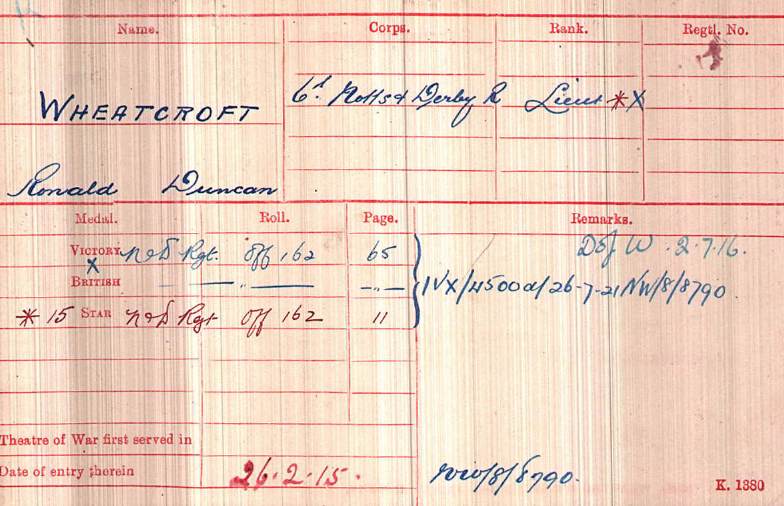 Name. Corps. Rank. Regtl. No.
WHEATCROFT 6th Notts & Derby R Lieut * X
Ronald Duncan
Medal. Roll. Page. Remarks.
VICTORY N&D Rgt. Off 162 65 D of W. 2.7.16.
X
BRITISH — " — — " — IVX/4500d/26-7-21 NW/8/8790
* 15 STAR N&D Rgt Off 162 11
Theatre of War first served in
Date of entry therein 26.2.15. NW/8/8790.
K. 1380